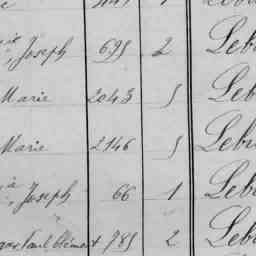 Joseph 695 2 Leb
Marie 2043 5 Leb
Marie 2146 5 Lebu
Joseph 66 1 Leb
Paul Clément 785 2 Leb